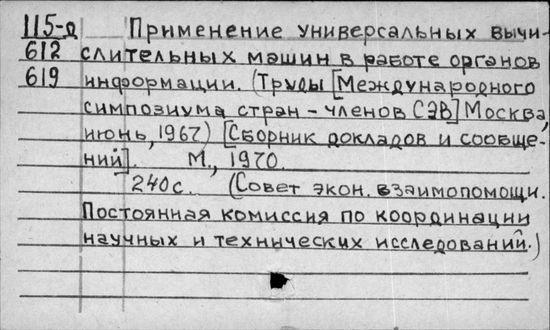 115-д Применение универсальных вычи-
612 слительных машин в работе органов
619 информации. (Труды [Международного
симпозиума стран - членов СЭВ] Москва,
июнь, 1967) [Сборник докладов и сообще-
ний]. М., 1970.
240с. (Совет экон. взаимопомощи.
Постоянная комиссия по координации
научных и технических исследований.)